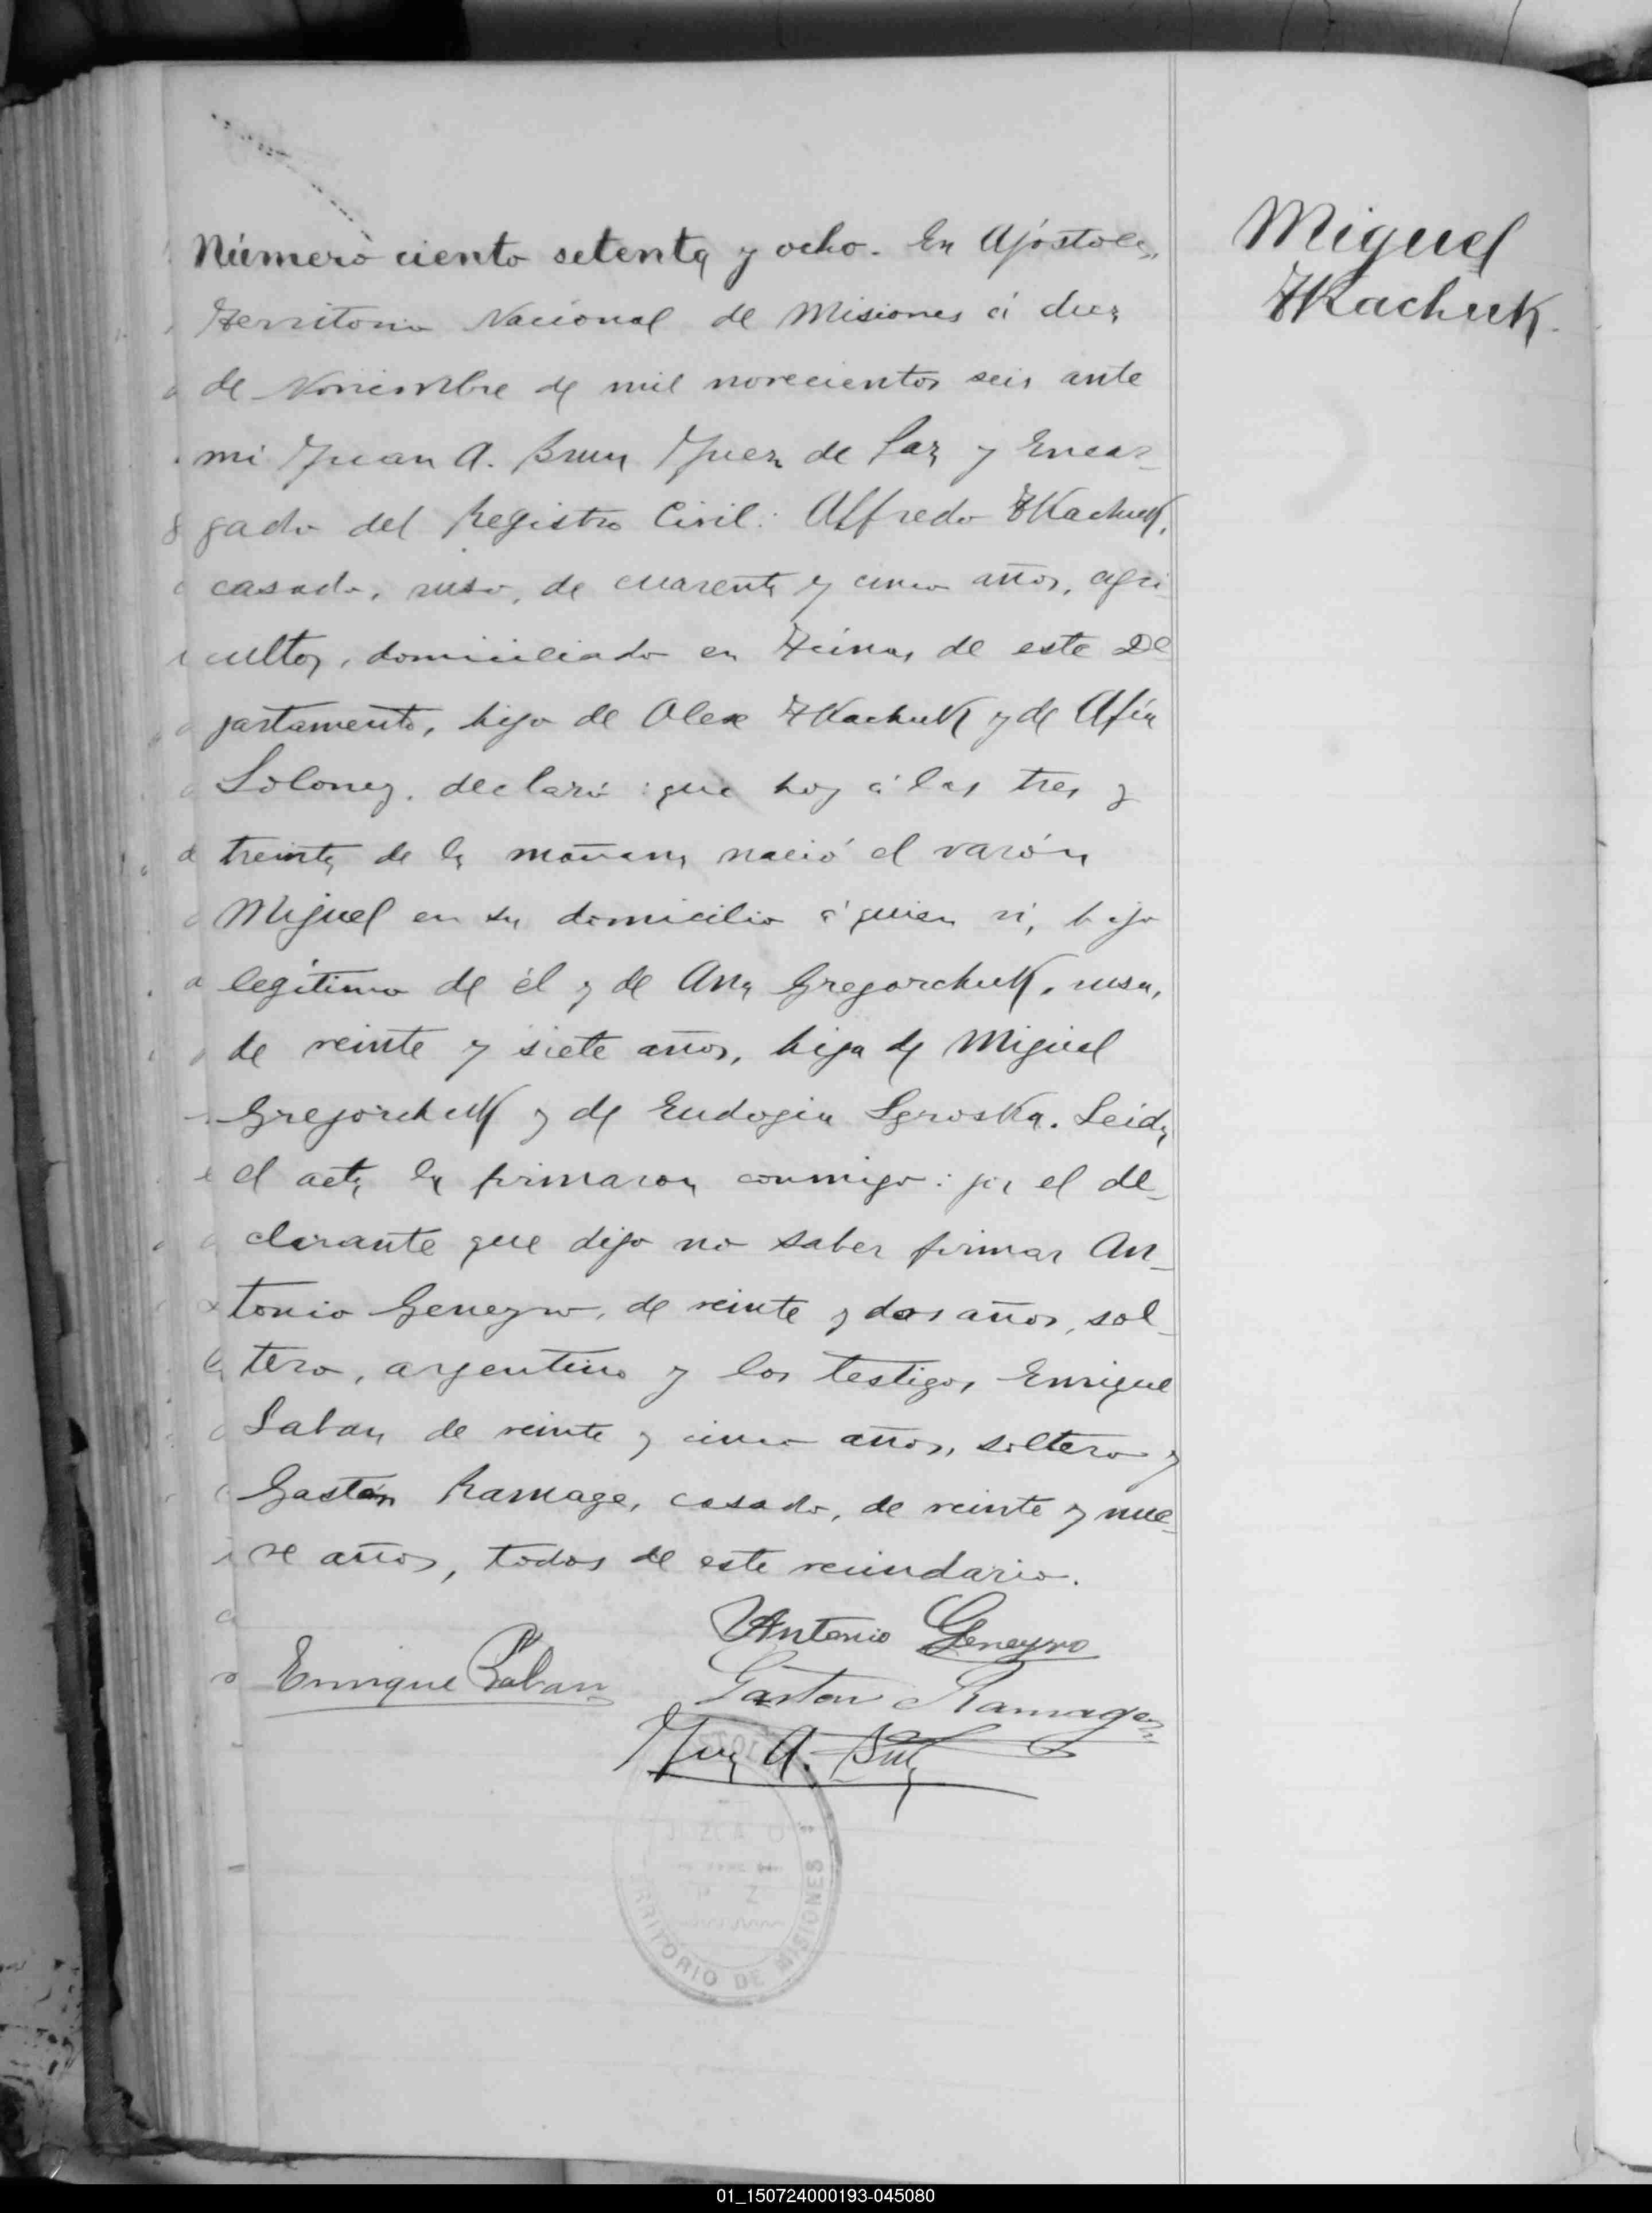 Miguel
TKachuk.
Número ciento setenta y ocho. En Apóstoles,
Territorio Nacional de Misiones á diez
de Noviembre de mil novecientos seis ante
mi Juan A. Brun Juez de Paz y Encar-
gado del Registro Civil: Alfredo TKachuk,
casado, ruso, de cuarenta y cinco años, agri
cultor, domiciliado en de este De
partamento, hijo de Olex TKachuk y de Afia
Solonez. declaró: que hoy á las tres y
treinta de la mañana nació el varón
Miguel en su domicilio á quien ví, hijo
legítimo de él y de Ana Gregorchuk, rusa,
de veinte y siete años, hija de Miguel
Gregorchuk y de Eudogia Sgroska. Leida
el acta la firmaron conmigo: por el de-
clarante que dijo no saber firmar An-
tonio Geneyro, de veinte y dos años, sol-
tero, argentino y los testigos Enrique
Laban de veinte y cinco años, soltero y
Gastón Ramage, casado, de veinte y nue-
ve años, todos de este vecindario.
Antonio Geneyro
Enrique Laban
Gaston Ramage
Juan A. Brun
TERRITORIO DE MISIONES
01_150724000193-045080